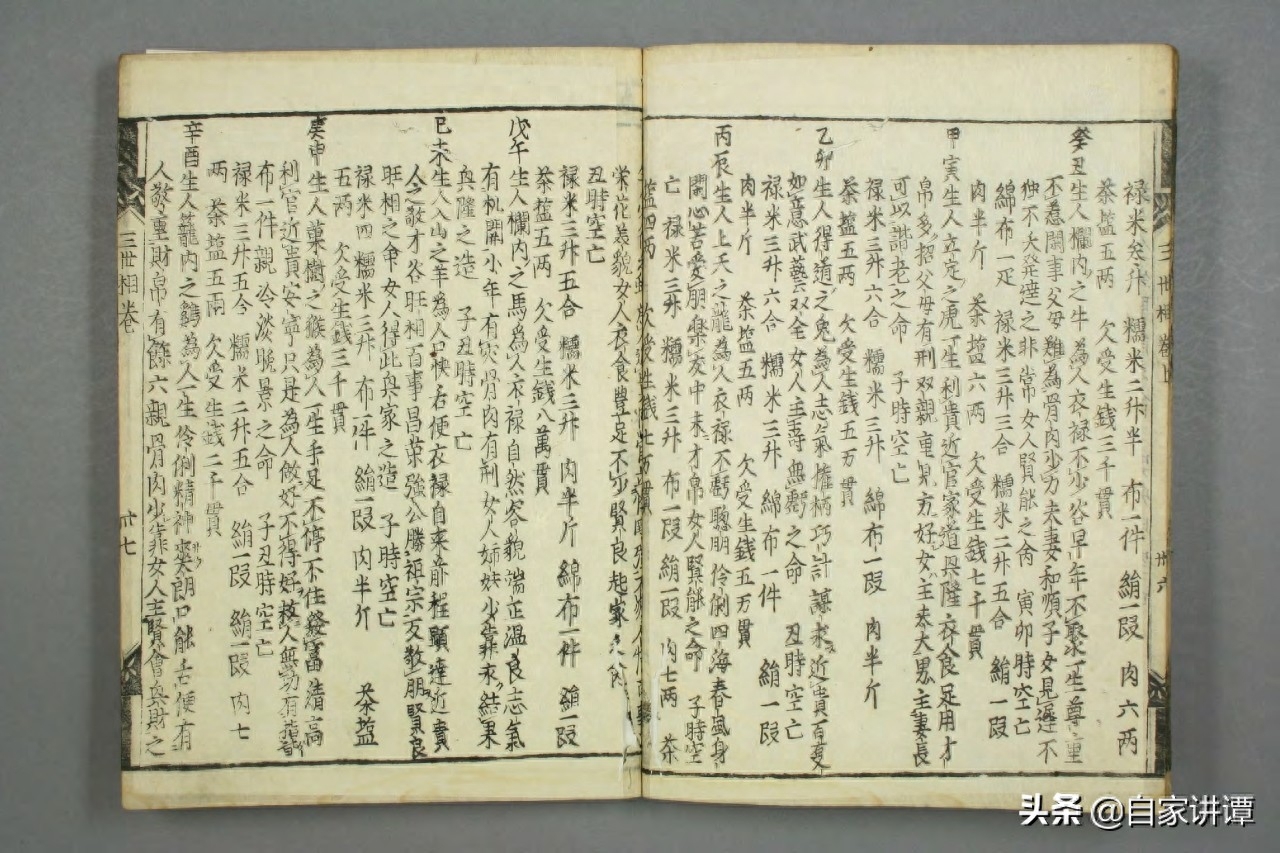 禄米叁升 糯米二升半 布一件 絹一段 肉六两
茶盐五两 欠受生銭三千貫
癸丑生人欄内之牛為人衣禄不少咎早年不聚一生尊重
不惹閑事父母難為骨肉少力夫妻和順子女見遲不
独不大発達之非常女人賢能之命 寅卯時空亡
綿布一疋 禄米三升三合 糯米二升五合 絹一段
肉半斤 茶盐六两 欠受生銭七千貫
甲寅生人立定之虎一生利貴近官家道興隆衣食足用才
帛多招父母有刑双親重見方好女主夫大男主妻長
可以諧老之命 子時空亡
禄米三升六合 糯米三升 綿布一段 肉半斤
茶盐五两 欠受生銭五万貫
乙卯生人得道之兔為人志氣權柄巧計謀求近貴百要
如意武藝双全女人主壽無虧之命 丑時空亡
禄米三升六合 糯米三升 綿布一件 絹一段
肉半斤 茶盐五两 欠受生銭五万貫
丙辰生人上天之龍為人衣禄不虧聰明伶俐四海春風身
閑心苦愛朋樂交中未才帛女人賢能之命 子時空
亡 禄米三升 糯米三升 布一段 絹一段 肉七两 茶
盐四两
三世相卷上
卅六
榮花美貌女人衣食豊足不少賢良起家之命
丑時空亡
禄米三升五合 糯米三升 肉半斤 綿布一件 絹一段
茶盐五两 欠受生銭八萬貫
戊午生人欄内之馬為人衣禄自然容貌端正温良志氣
有机開小年有灾骨肉有刑女人姉妹少靠來結果
興隆之造 子丑時空亡
己未生人入山之羊為人口快舌便衣禄自來前程顕達近貴
人之敬才谷旺相百事昌荣強公勝祖宗反敬朋賢良
旺相之命女人得此興家之造 子時空亡
禄米四 糯米三升 布一件 絹一段 肉半斤 茶盐
五两 欠受生銭三千貫
庚申生人菓樹之猴為人一生手足不停不住發富清高
利官近貴安寧只是為人做好不得好救人無功有
布一件親冷淡晚景之命 子丑時空亡
禄米三升五合 糯米二升五合 絹一段 絹一段 肉七
两 茶盐五兩 欠受生銭二千貫
辛酉生人籠内之鷄為人一生伶俐精神爽朗口能舌便有
人敬重財帛有餘六親骨肉少靠女人主賢會興財之
三世相卷
卅七
头条 @自家讲谭